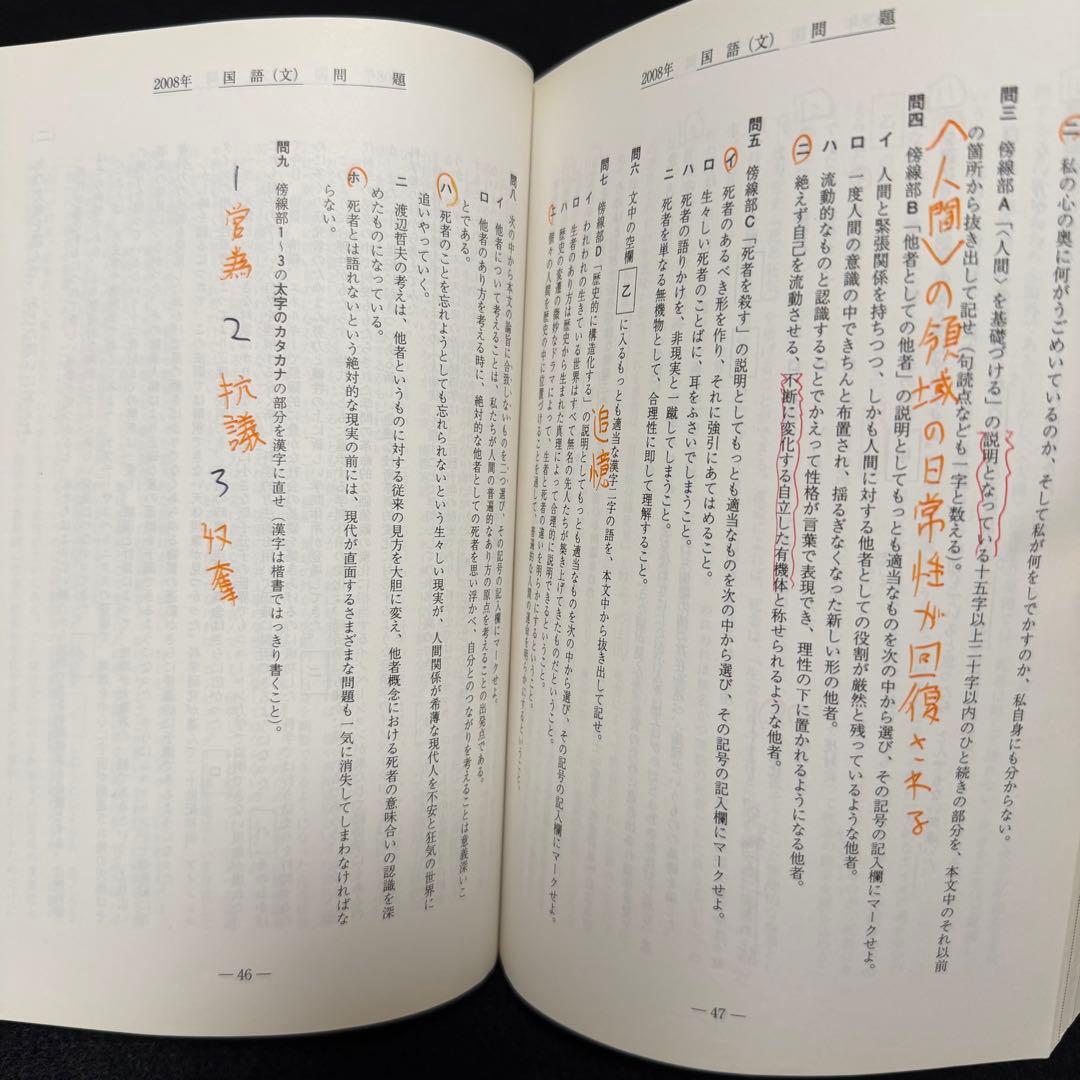 2008年 国語(文) 問題
ニ 私の心の奥に何がうごめいているのか、そして私が何をしでかすのか、私自身にも分からない。
問三 傍線部A「〈人間〉を基礎づける」の説明となっている十五字以上二十字以内のひと続きの部分を、本文中のそれ以前
の箇所から抜き出して記せ(句読点なども一字と数える)。
〈人間〉の領域の日常性が回復される
問四 傍線部B「他者としての他者」の説明としてもっとも適当なものを次の中から選び、その記号の記入欄にマークせよ。
イ 人間と緊張関係を持ちつつ、しかも人間に対する他者としての役割が厳然と残っているような他者。
ロ 一度人間の意識の中できちんと布置され、揺るぎなくなった新しい形の他者。
ハ 流動的なものと認識することでかえって性格が言葉で表現でき、理性の下に置かれるようになる他者。
ニ 絶えず自己を流動させる、不断に変化する自立した有機体と称せられるような他者。
問五 傍線部C「死者を殺す」の説明としてもっとも適当なものを次の中から選び、その記号の記入欄にマークせよ。
イ 死者のあるべき形を作り、それに強引にあてはめること。
ロ 生々しい死者のことばに、耳をふさいでしまうこと。
ハ 死者の語りかけを、非現実と一蹴してしまうこと。
ニ 死者を単なる無機物として、合理性に即して理解すること。
問六 文中の空欄 乙 に入るもっとも適当な漢字二字の語を、本文中から抜き出して記せ。
追憶
問七 傍線部D「歴史的に構造化する」の説明としてもっとも適当なものを次の中から選び、その記号の記入欄にマークせよ。
イ われわれの生きている世界はすべて無名の先人たちが築き上げてきたものだということ。
ロ 生者のあり方は歴史から生まれた真理によって合理的に説明できるということ。
ハ 歴史の変遷の微妙なドラマによって、生者と死者の違いを明らかにするということ。
ニ 個々の人間を歴史の中に位置づけることを通して、普遍的な人間の運命を明らかにするということ。
— 47 —
2008年 国語(文) 問題
問八 次の中から本文の論旨に合致しないものを二つ選び、その記号の記入欄にマークせよ。
イ 他者について考えることは、私たちが人間の普遍的なあり方の原点を考えることの出発点である。
ロ 他者のあり方を考える時に、絶対的な他者としての死者を思い浮かべ、自分とのつながりを考えることは意義深いこ
とである。
ハ 死者のことを忘れようとしても忘れられないという生々しい現実が、人間関係が希薄な現代人を不安と狂気の世界に
追いやっていく。
ニ 渡辺哲夫の考えは、他者というものに対する従来の見方を大胆に変え、他者概念における死者の意味合いの認識を深
めたものになっている。
ホ 死者とは語れないという絶対的な現実の前には、現代が直面するさまざまな問題も一気に消失してしまわなければな
らない。
問九 傍線部1〜3の太字のカタカナの部分を漢字に直せ(漢字は楷書ではっきり書くこと)。
1 営為 2 抗議 3 収奪
— 46 —